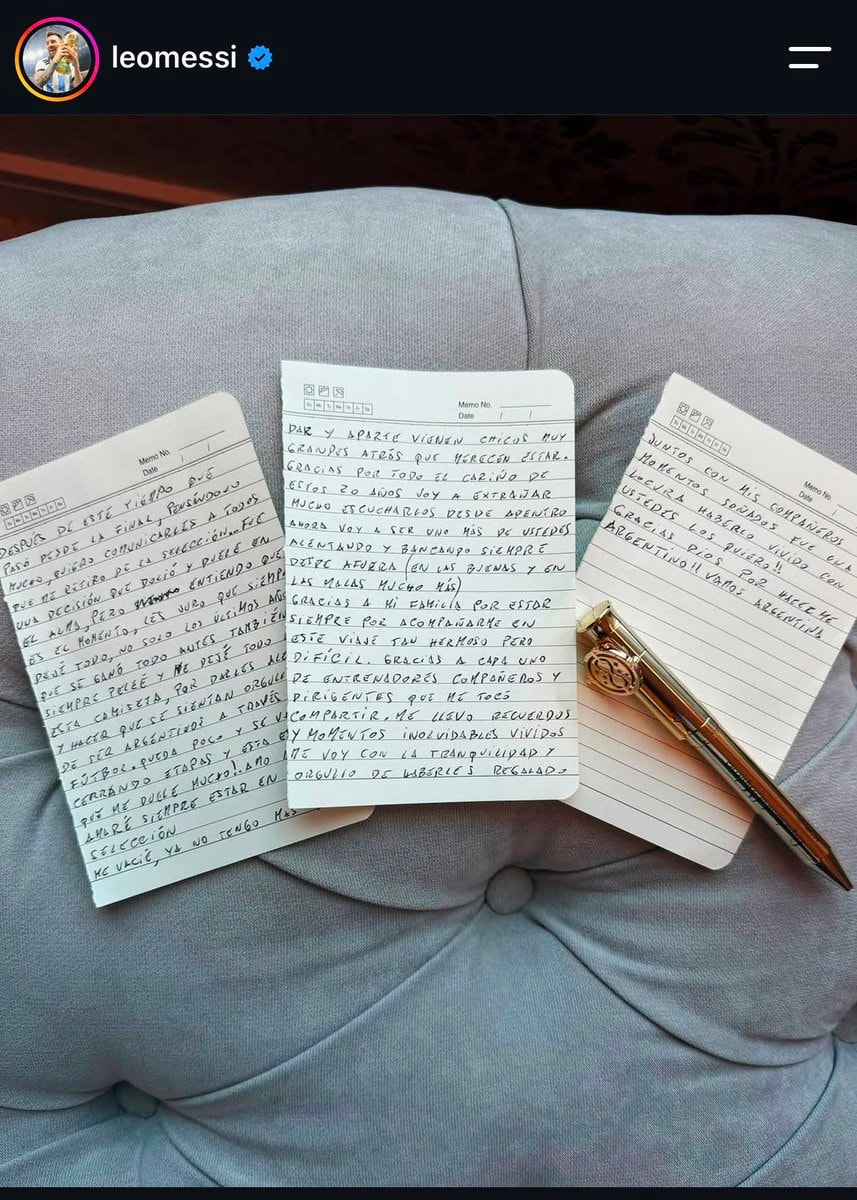 leomessi
Memo No.
Date / /
DESPUÉS DE ESTE TIEMPO QUE
PASÓ DESDE LA FINAL, PENSÁNDOLO
MUCHO, QUIERO COMUNICARLES A TODOS
QUE ME RETIRO DE LA SELECCIÓN... FUE
UNA DECISIÓN QUE DOLIÓ Y DUELE EN
EL ALMA, PERO ENTIENDO QUE
ES EL MOMENTO, LES JURO QUE SIEMP
DEJÉ TODO, NO SOLO LOS ÚLTIMOS AÑOS
QUE SE GANÓ TODO ANTES TAMBIÉN
SIEMPRE PELEÉ Y ME DEJÉ TODO
ESTA CAMISETA, POR DARLES ALE
Y HACER QUE SE SIENTAN ORGULL
DE SER ARGENTINOS A TRAVÉS
FÚTBOL. QUEDA POCO Y SE VA
CERRANDO ETAPAS Y ESTA E
QUE ME DUELE MUCHO!. AMO
AMARÉ SIEMPRE ESTAR EN
SELECCIÓN
ME VACIÉ, YA NO TENGO MAS
Memo No.
Date / /
DAR Y APARTE VIENEN CHICOS MUY
GRANDES ATRÁS QUE MERECEN ESTAR.
GRACIAS POR TODO EL CARIÑO DE
ESTOS 20 AÑOS VOY A EXTRAÑAR
MUCHO ESCUCHARLOS DESDE ADENTRO
AHORA VOY A SER UNO MÁS DE USTEDES
ALENTANDO Y BANCANDO SIEMPRE
DESDE AFUERA (EN LAS BUENAS Y EN
LAS MALAS MUCHO MÁS)
GRACIAS A MI FAMILIA POR ESTAR
SIEMPRE POR ACOMPAÑARME EN
ESTE VIAJE TAN HERMOSO PERO
DIFÍCIL. GRACIAS A CADA UNO
DE ENTRENADORES COMPAÑEROS Y
DIRIGENTES QUE ME TOCÓ
COMPARTIR. ME LLEVO RECUERDOS
Y MOMENTOS INOLVIDABLES VIVIDOS
ME VOY CON LA TRANQUILIDAD Y
ORGULLO DE HABERLES REGALADO
Memo No.
Date /
JUNTOS CON MIS COMPAÑEROS
MOMENTOS SOÑADOS FUE UNA
LOCURA HABERLO VIVIDO CON
USTEDES LOS QUIERO!!
GRACIAS DIOS POR HACERME
ARGENTINO!! VAMOS ARGENTINA